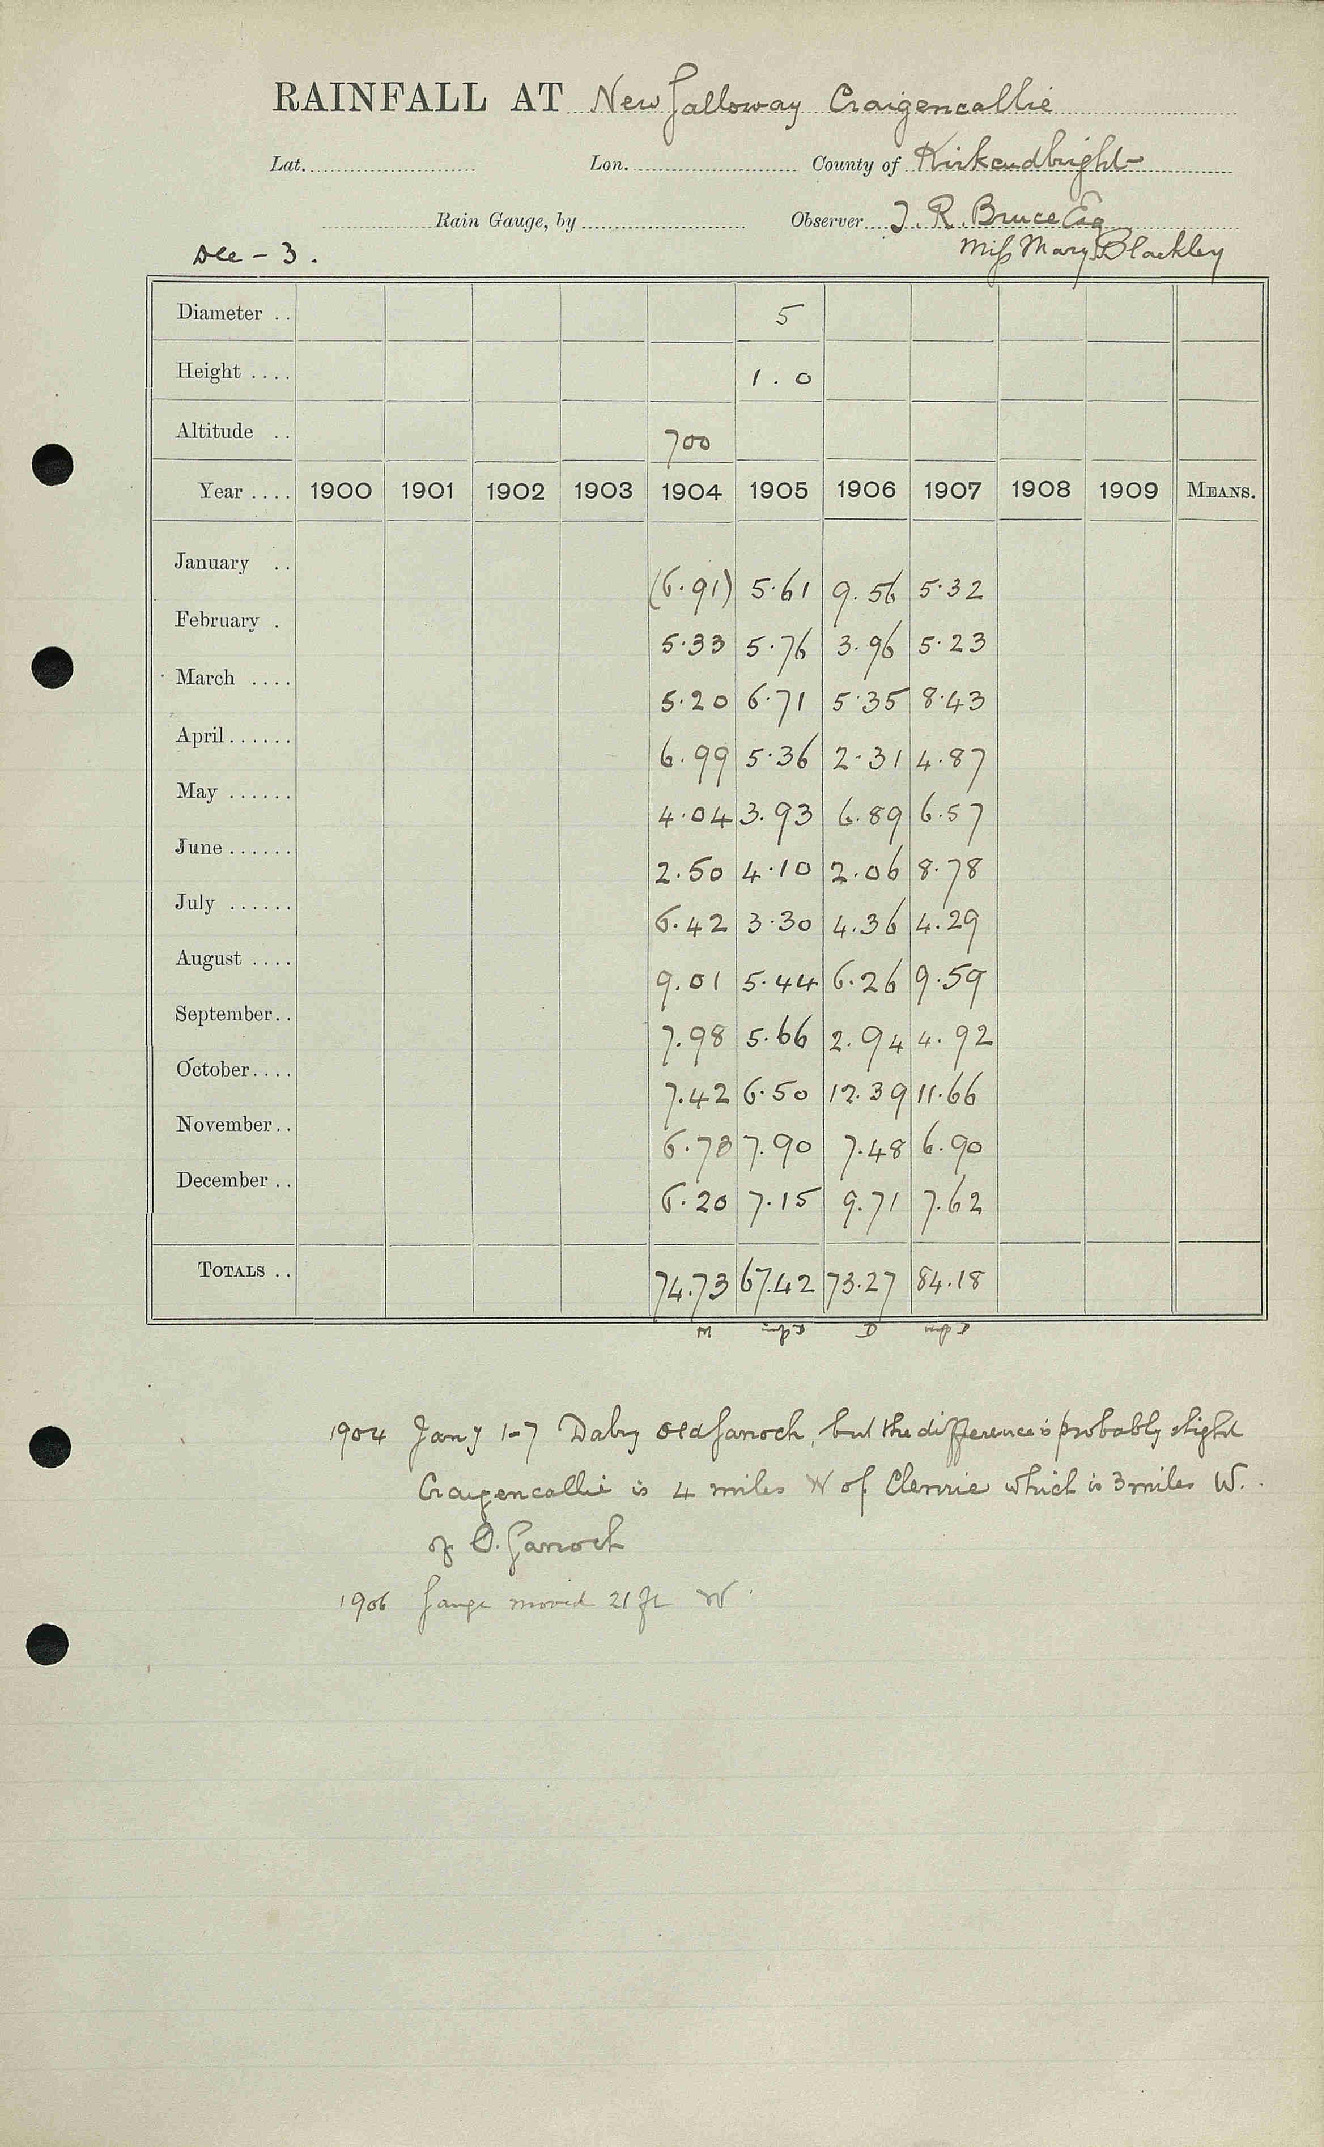 RAINFALL AT New Galloway Craigencallie
Lat. Lon. County of Kirkcudbright
Rain Gauge, by Observer J. R. Bruce Esq
Dec - 3. Miss Mary Blackley
Diameter .. 5
Height .... 1.0
Altitude .. 700
Year .... 1900 1901 1902 1903 1904 1905 1906 1907 1908 1909 MEANS.
January .. (6.91) 5.61 9.56 5.32
February . 5.33 5.76 3.96 5.23
March .... 5.20 6.71 5.35 8.43
April...... 6.99 5.36 2.31 4.87
May ...... 4.04 3.93 6.89 6.57
June...... 2.50 4.10 2.06 8.78
July ...... 6.42 3.30 4.36 4.29
August .... 9.01 5.44 6.26 9.59
September.. 7.98 5.66 2.94 4.92
October.... 7.42 6.50 12.39 11.66
November.. 6.73 7.90 7.48 6.90
December .. 6.20 7.15 9.71 7.62
TOTALS .. 74.73 67.42 73.27 84.18
M D
1904 Jany 1-7 Dalry Old Garroch, but the difference is probably slight
Craigencallie is 4 miles W of Clennie which is 3 miles W.
of O. Garroch
1906 Gauge moved 21 ft W.